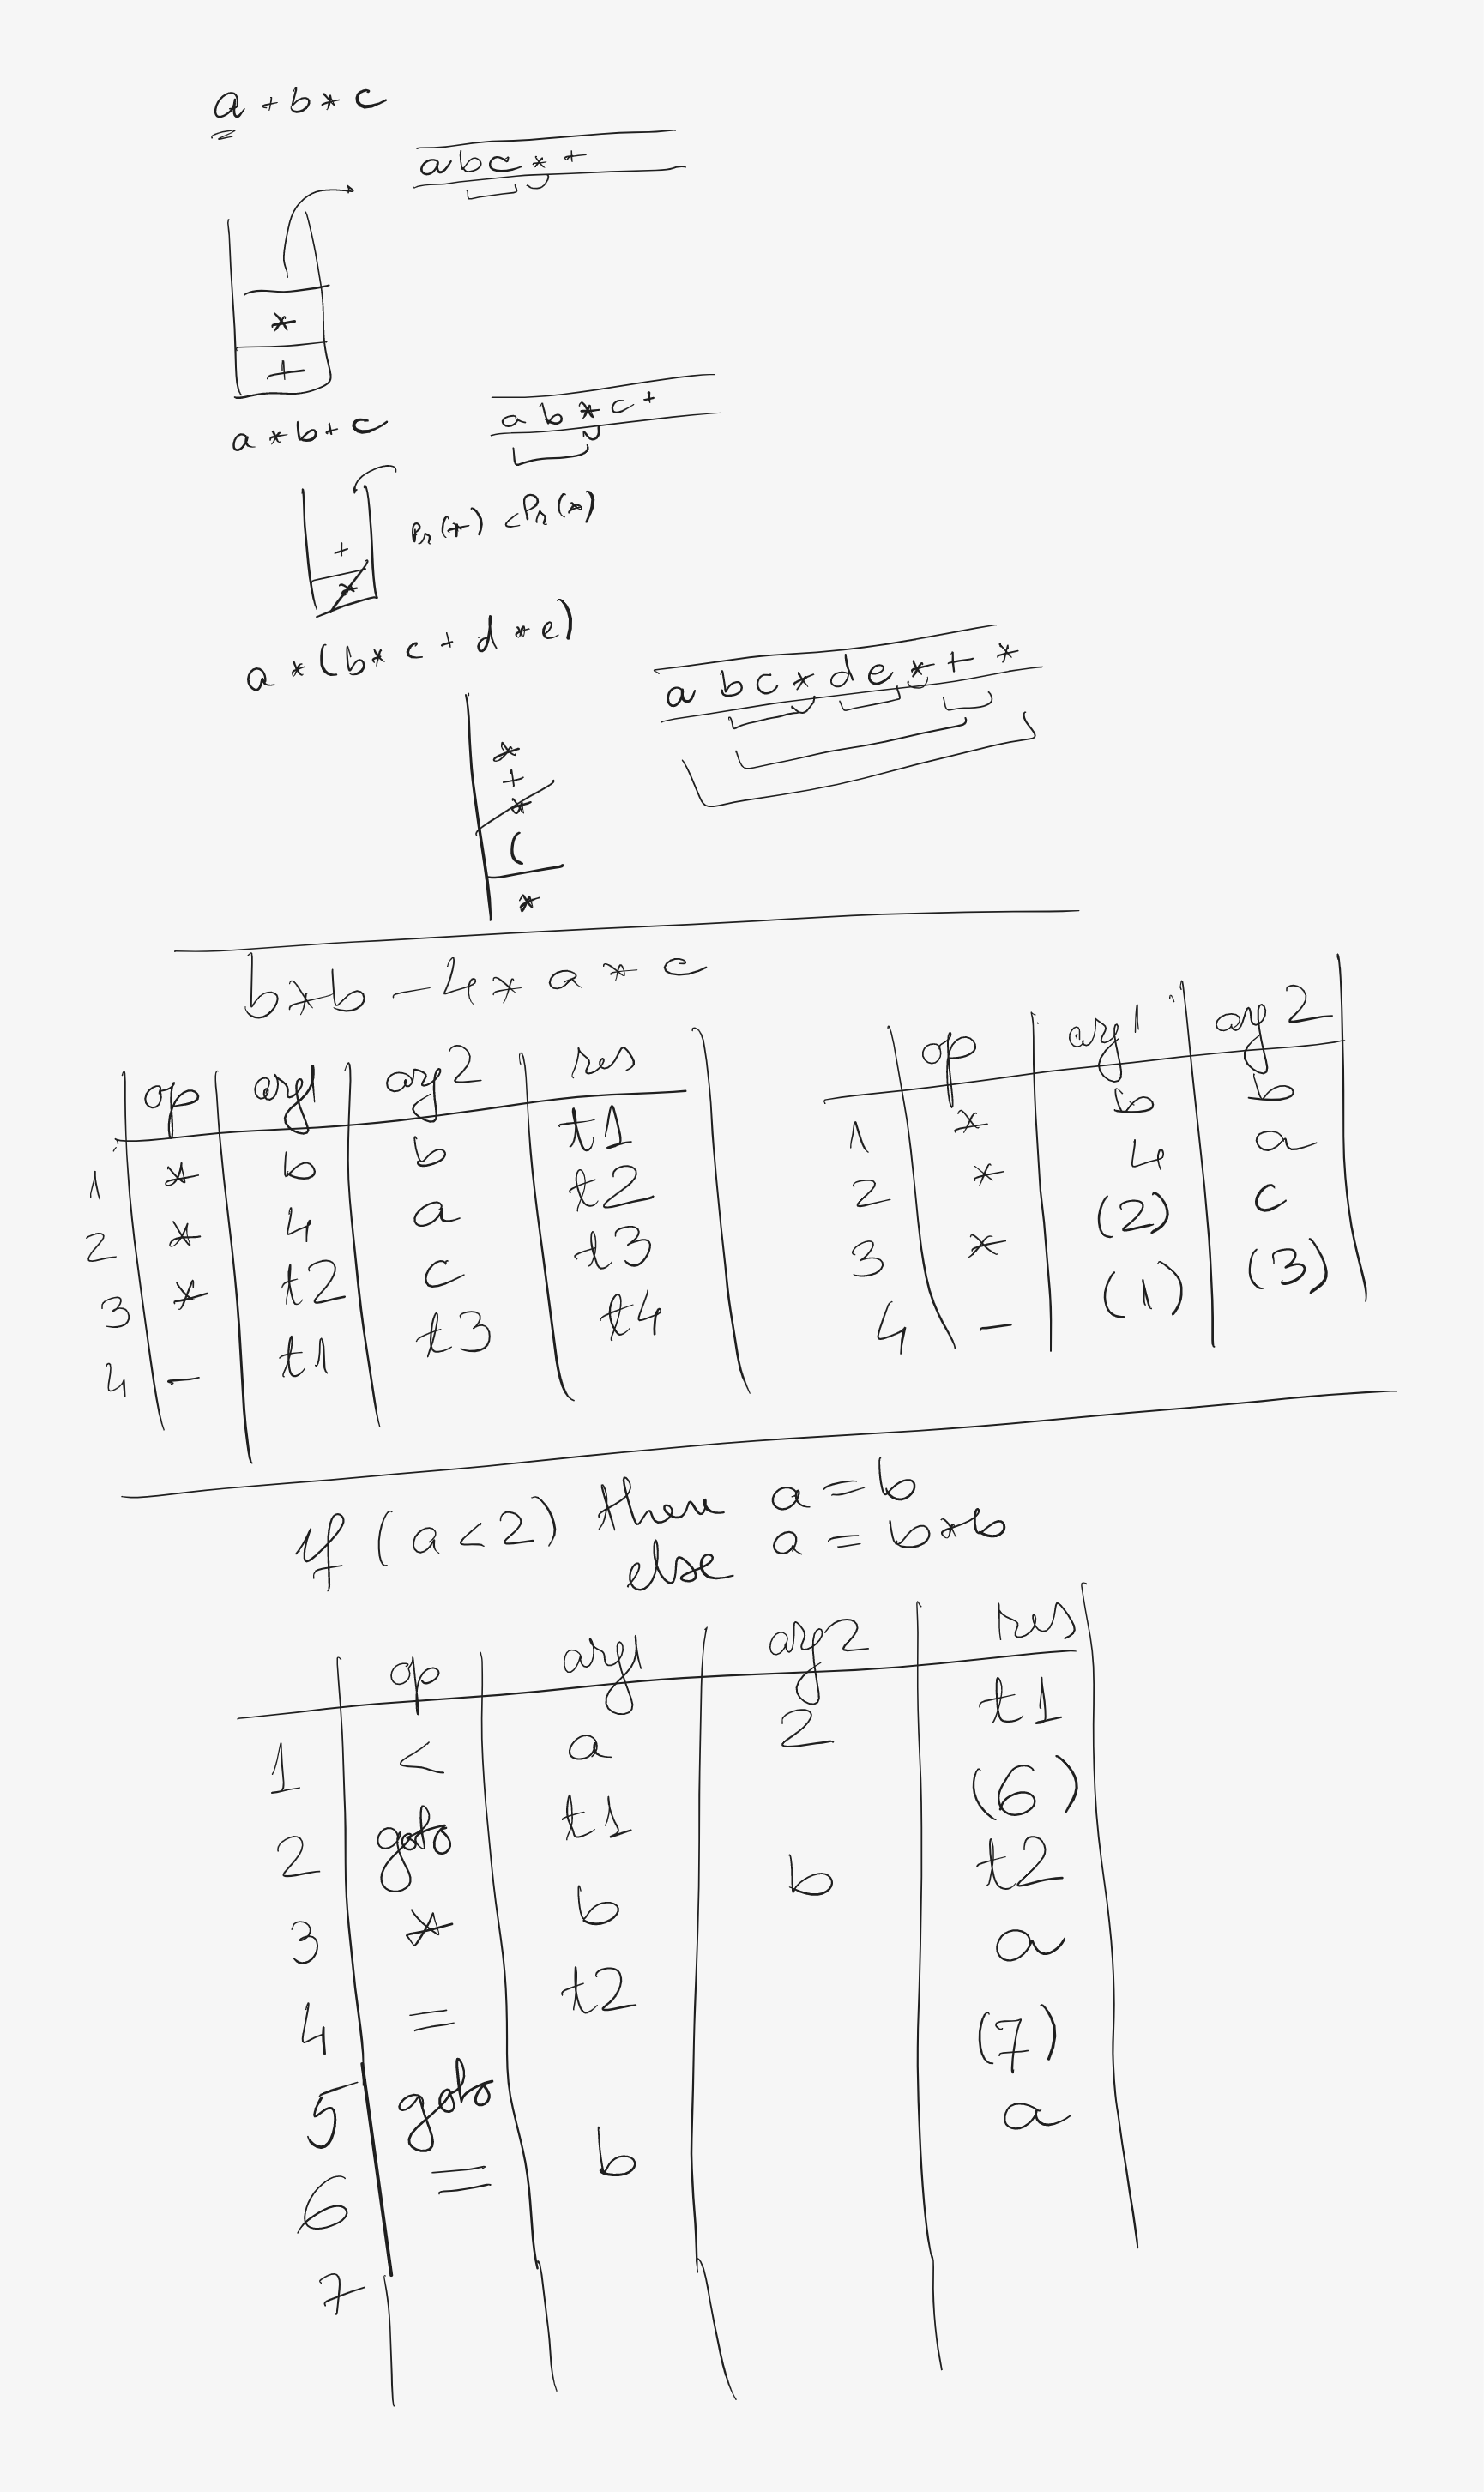 a + b * c
a b c * +
*
+
a * b + c
a b * c +
Pr(+) < Pr(*)
+
*
a * (b * c + d * e)
a b c * d e * + *
*
+
*
(
*
b * b - 4 * a * c
op arg1 arg2 res
1 * b b t1
2 * 4 a t2
3 * t2 c t3
4 - t1 t3 t4
op arg1 arg2
1 * b b
2 * 4 a
3 * (2) c
4 - (1) (3)
if (a < 2) then a = b
else a = b * b
op arg1 arg2 res
1 < a 2 t1
2 goto t1 (6)
3 * b b t2
4 = t2 a
5 goto (7)
6 = b a
7